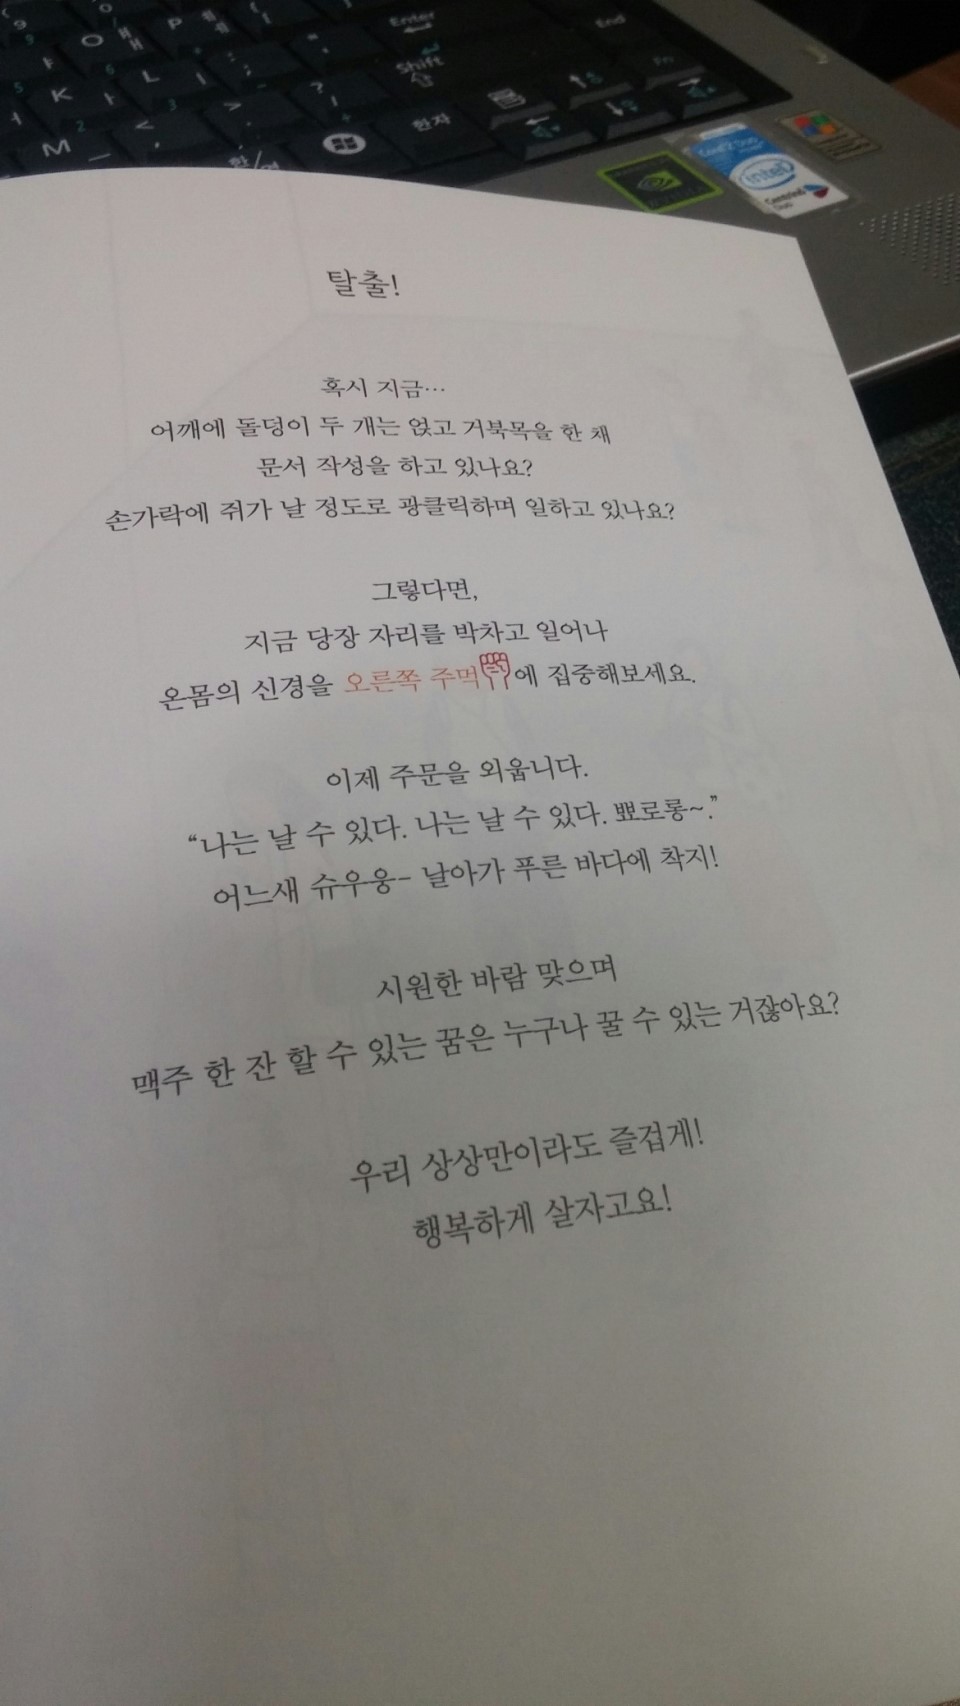 Enter
End
Shift
Fn
K
L
M
한자
한/영
Core 2 Duo
intel
Centrino
Duo
탈출!
혹시 지금…
어깨에 돌덩이 두 개는 얹고 거북목을 한 채
문서 작성을 하고 있나요?
손가락에 쥐가 날 정도로 광클릭하며 일하고 있나요?
그렇다면,
지금 당장 자리를 박차고 일어나
온몸의 신경을 오른쪽 주먹에 집중해보세요.
이제 주문을 외웁니다.
“나는 날 수 있다. 나는 날 수 있다. 뾰로롱~.”
어느새 슈우웅- 날아가 푸른 바다에 착지!
시원한 바람 맞으며
맥주 한 잔 할 수 있는 꿈은 누구나 꿀 수 있는 거잖아요?
우리 상상만이라도 즐겁게!
행복하게 살자고요!